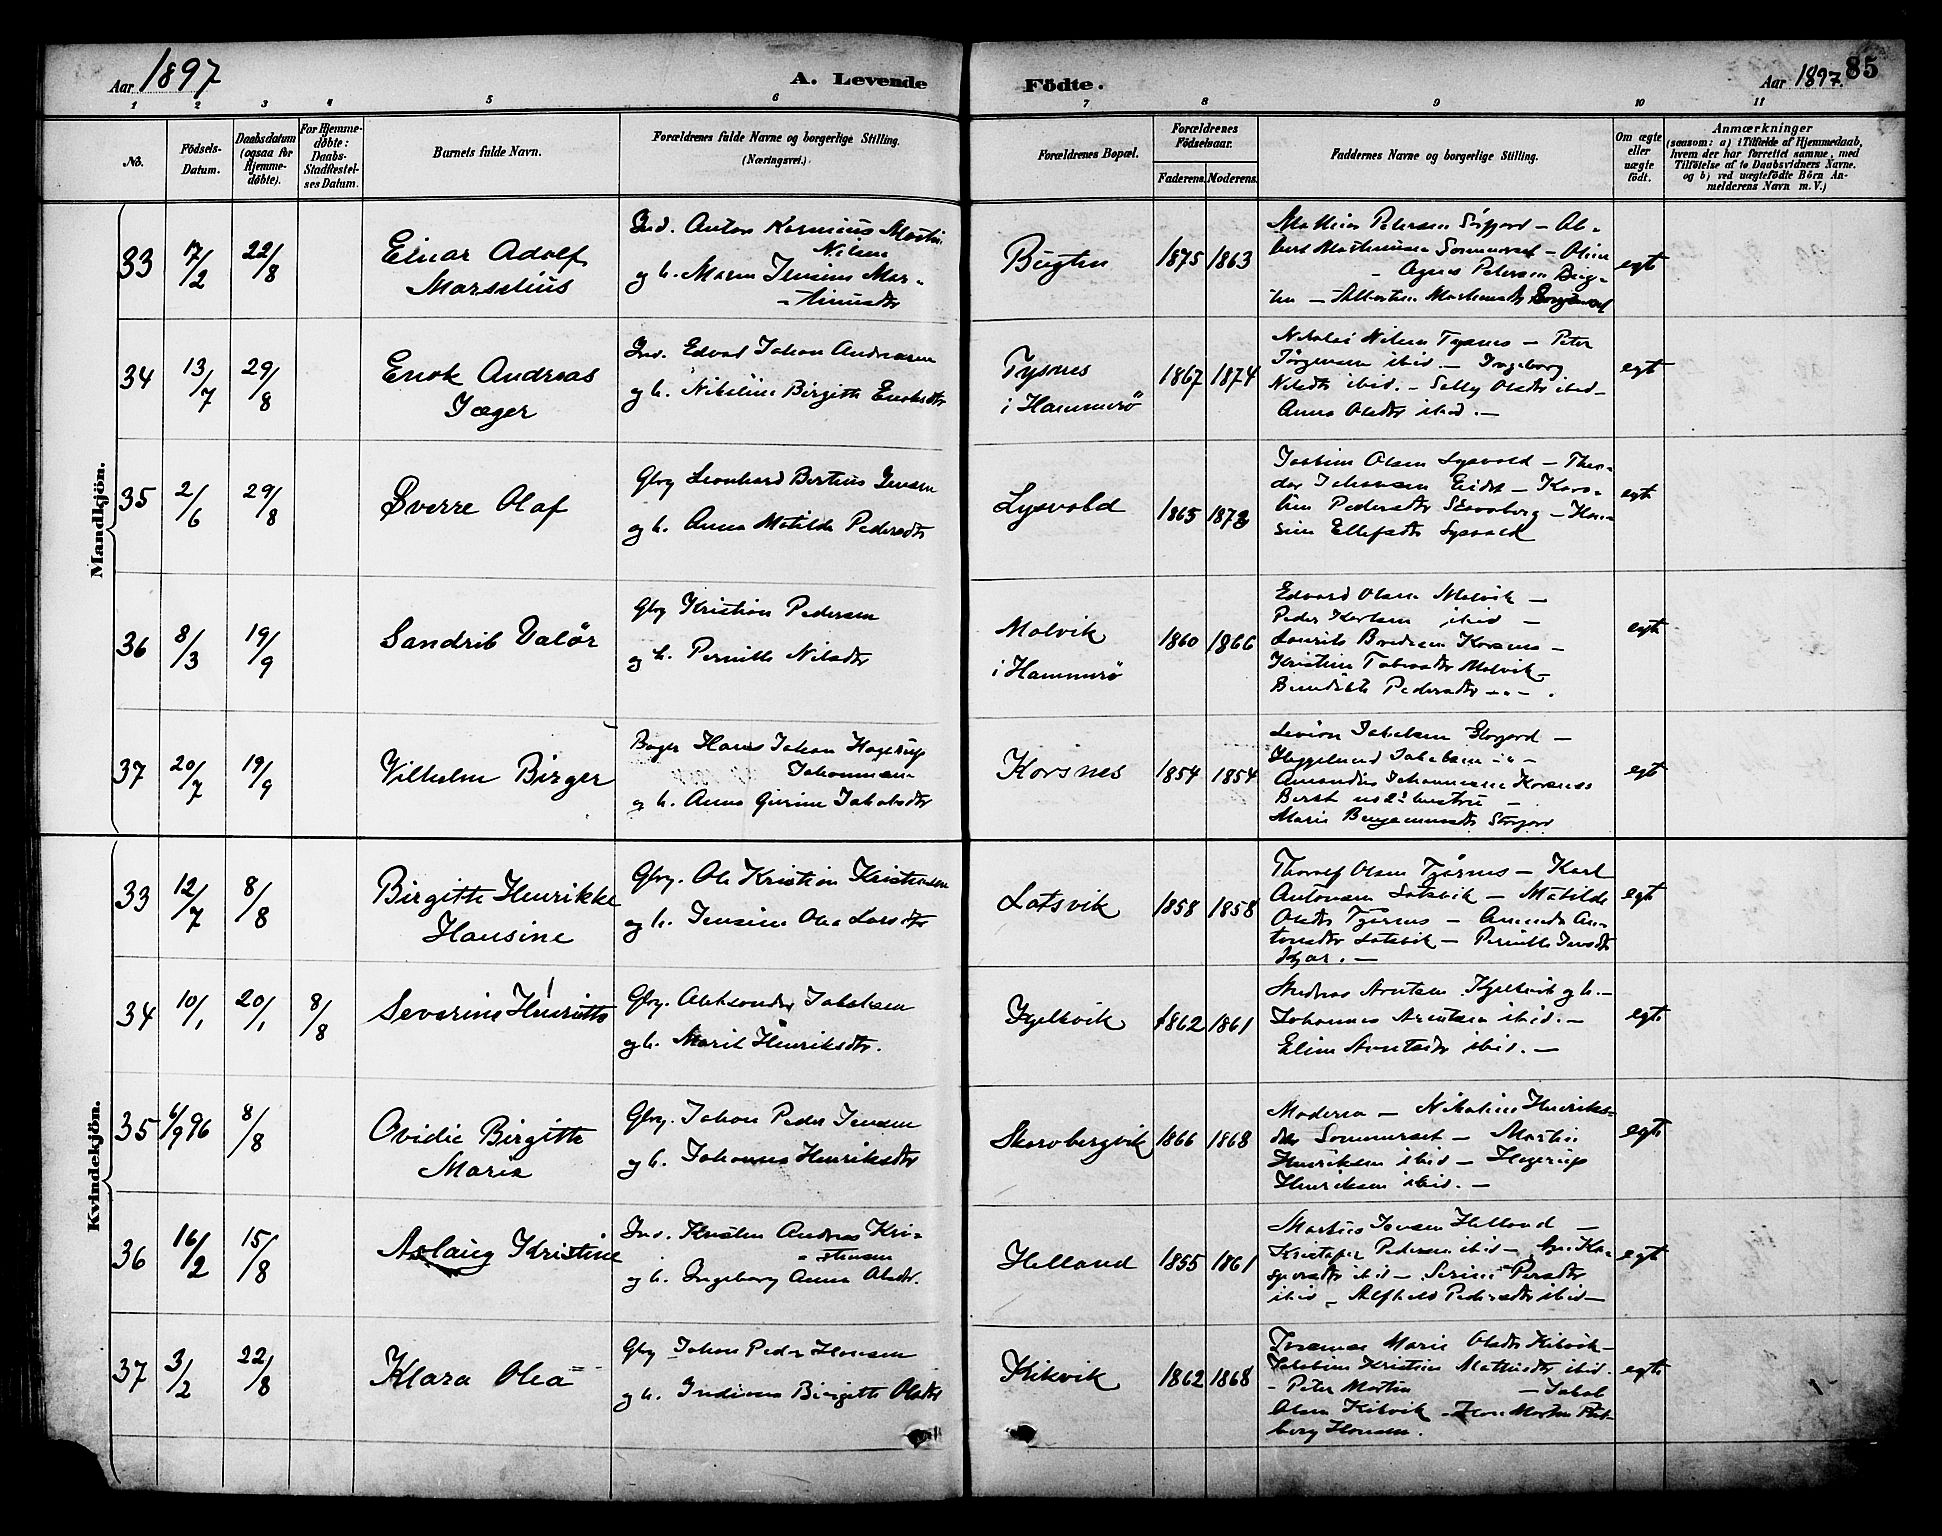 Aar 1897
A. Levende
Födte.
Aar 1897.
85
1 2 3 4 5 6 7 8 9 10 11
No.
Födsels-
Datum.
Daabsdatum
(ogsaa for
Hjemme-
døbte).
For Hjemme-
døbte:
Daabs-
Stadfæstel-
ses Datum.
Barnets fulde Navn.
Forældrenes fulde Navne og borgerlige Stilling.
(Næringsvei.)
Forældrenes Bopæl.
Forældrenes
Födselsaar.
Faderens. Moderens.
Faddernes Navne og borgerlige Stilling.
Om ægte
eller
uægte
født.
Anmærkninger
(saasom: a) i Tilfælde af Hjemmedaab,
hvem der har forrettet samme, med
Tilföielse af to Daabsvidners Navne.
og b) ved uægtefödte Börn An-
melderens Navn m. V.)
Mandkjön.
33 17/2 22/8
Einar Adolf
Marselius
Ind. Anton Kornius Martin
Nilsen
og h. Maren Jensine Mar-
tinusdtr
Bugten
1875 1863
Mathias Petersen Sörfjord - Al-
bert Martinussen Sommerset - Oline
- Agnes Petersen Bug-
ten - Albertine Martinusdtr
egte
34 13/7 29/8
Enok Andreas
Jæger
Ind. Edvad Johan Andreasen
og h. Nikoline Birgitte Enoksdtr
Tysnes
i Hammerö
1867 1874
Nikolai Nilsen Tysnes - Peter
Jörgensen ibid - Ingeborg
Nilsdtr ibid. - Selly Olsdtr ibid -
Anna Olsdtr ibid. -
egte
35 2/6 29/8
Sverre Olaf
Gbrg Leonhard Bertius Jensen
og h. Anna Matilde Pedersdtr
Lysvold
1865 1873
Joakim Olsen Lysvold - Theo-
dor Johansen Eidet - Kars-
tine Pedersdtr Skovberg - Han-
sine Ellefsdtr Lysvold
egte
36 8/3 19/9
Sandrik Valör
Gbrg Kristian Pedersen
og h. Pernille Nilsdtr
Molvik
i Hammerö
1860 1866
Edvard Olsen Molvik -
Peder Karlsen ibid -
Laurits Bredesen Korsnes -
Kristine Tobiasdtr Molvik -
Benedikte Pedersdtr -"- .
egte
37 20/7 19/9
Vilhelm Birger
Bager Hans Johan Hagerup
Johannesen
og h. Anna Gurine Jakobsdtr
Korsnes
1854 1854
Jakobsen Storjord -
Jakobsen -"-
Johannesen Korsnes
hustru -
Marie Benjaminsdtr Storjord
egte
Kvindekjön.
33 12/7 8/8
Birgitte Henrikke
Hansine
Gbrg. Ole Kristian Kristensen
og h. Jensine Olea Larsdtr
Lotsvik
1858 1858
Thoralf Olsen Tjörnes - Karl
Antonsen Lotsvik - Matilde
Olsdtr Tjörnes - Amanda An-
tonsdtr Lotsvik - Pernille Jensdtr
Kjær. -
egte
34 10/1 20/1 8/8
Severine Henriette
Gbrg. Aleksander Jakobsen
og h. Marit Henriksdtr.
Kjelkvik
1862 1861
Andreas Arntsen Kjelkvik og h. -
Johannes Arntsen ibid. -
Eline Arntsdtr ibid. -
egte
35 6/9 96 8/8
Ovidie Birgitte
Maria
Gbrg. Johan Peder Jensen
og h. Johanna Henriksdtr
Skarvbergvik
1866 1868
Moderen - Nikoline Henriks-
dtr Sommerset - Martin
Henriksen ibid - Hagerup
Henriksen ibid. -
egte
36 16/2 15/8
Aslaug Kristine
Ind. Kristen Andreas Kri-
stensen
og h. Ingeborg Anna Olsdtr.
Helland
1855 1861
Martius Jensen Helland -
Kristofer Pedersen ibid - Ka-
spersdtr ibid - Serine Persdtr
ibid - Alfhild Pedersdtr ibid -
egte
37 3/2 22/8
Klara Olea
Gbrg Johan Peder Hansen
og h. Indianna Birgitte Olsdtr
Kikvik
1862 1868
Marie Olsdtr Kikvik -
Jakobine Kristine Mathisdtr ibid.
- Peter Martin - Jakob
Olsen Kikvik - Hans Morten
berg Hansen.
egte